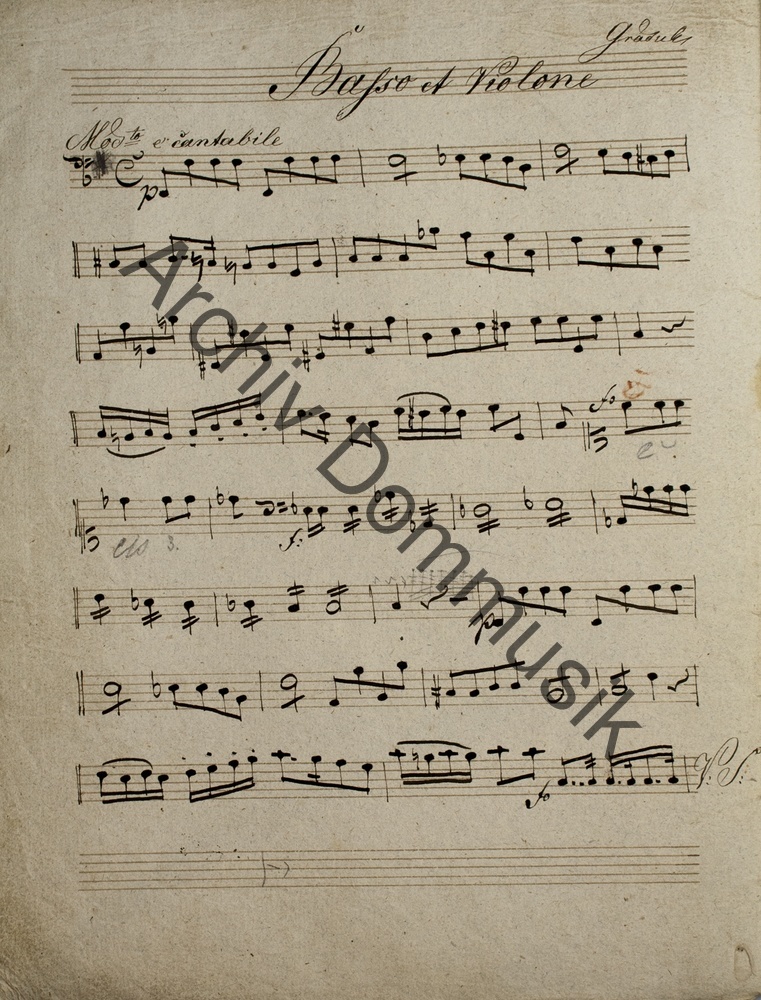 Graduale
Basso et Violone
Mod:to e cantabile
p
fo
f:
p
fo
V: S:
Archiv Dommusik